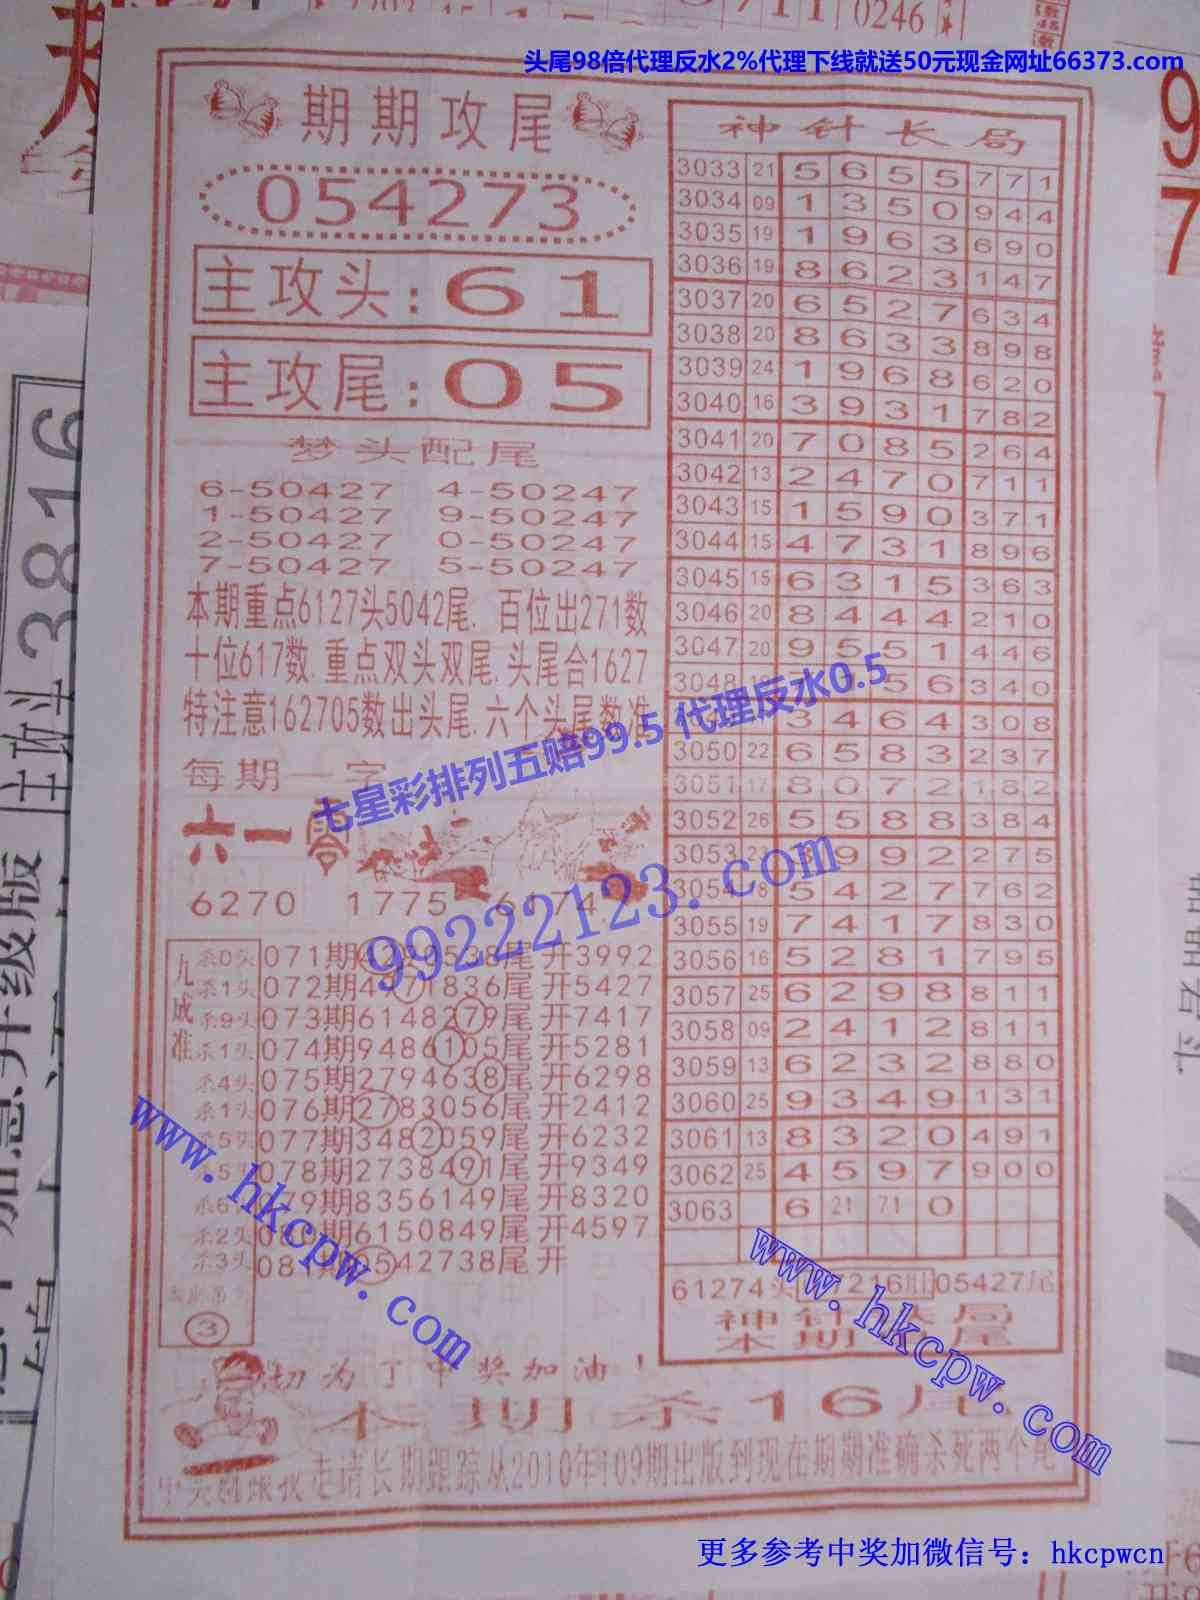 头尾98倍代理反水2%代理下线就送50元现金网址66373.com
0246
期期攻尾
054273
主攻头:61
主攻尾:05
梦头配尾
6-50427 4-50247
1-50427 9-50247
2-50427 0-50247
7-50427 5-50247
本期重点6127头5042尾. 百位出271数
十位617数.重点双头双尾.头尾合1627
特注意162705数出头尾.六个头尾数准
每期一字
六一零
6270 1775
九成准
杀0头 071期 0538尾 开3992
杀1头 072期4971836尾 开5427
杀9头 073期6148279尾 开7417
杀1头 074期9486105尾 开5281
杀4头 075期2794638尾 开6298
杀1头 076期2783056尾 开2412
杀5头 077期3482059尾 开6232
078期2738491尾 开9349
079期8356149尾 开8320
杀2头 6150849尾 开4597
杀3头 081期2542738尾 开
③
神针长局
3033 21 5 6 5 5 7 7 1
3034 09 1 3 5 0 9 4 4
3035 19 1 9 6 3 6 9 0
3036 19 8 6 2 3 1 4 7
3037 20 6 5 2 7 6 3 4
3038 20 8 6 3 3 8 9 8
3039 24 1 9 6 8 6 2 0
3040 16 3 9 3 1 7 8 2
3041 20 7 0 8 5 2 6 4
3042 13 2 4 7 0 7 1 1
3043 15 1 5 9 0 3 7 1
3044 15 4 7 3 1 8 9 6
3045 15 6 3 1 5 3 6 3
3046 20 8 4 4 4 2 1 0
3047 20 9 5 5 1 4 4 6
3048 5 6 3 4 0
3 4 6 4 3 0 8
3050 22 6 5 8 3 2 3 7
3051 17 8 0 7 2 1 8 2
3052 26 5 5 8 8 3 8 4
3053 23 3 9 9 2 2 7 5
3054 18 5 4 2 7 7 6 2
3055 19 7 4 1 7 8 3 0
3056 16 5 2 8 1 7 9 5
3057 25 6 2 9 8 8 1 1
3058 09 2 4 1 2 8 1 1
3059 13 6 2 3 2 8 8 0
3060 25 9 3 4 9 1 3 1
3061 13 8 3 2 0 4 9 1
3062 25 4 5 9 7 9 0 0
3063 6 21 71 0
61274头 7216肚 05427尾
神针长局
切为了中奖加油!
本期杀16尾
走请长期跟踪从2010年109期出版到现在期期准确杀死两个尾
七星彩排列五赔99.5 代理反水0.5
99222123.com
www.hkcpw.com
www.hkcpw.com
更多参考中奖加微信号：hkcpwcn
主攻头 3816
加急升级版